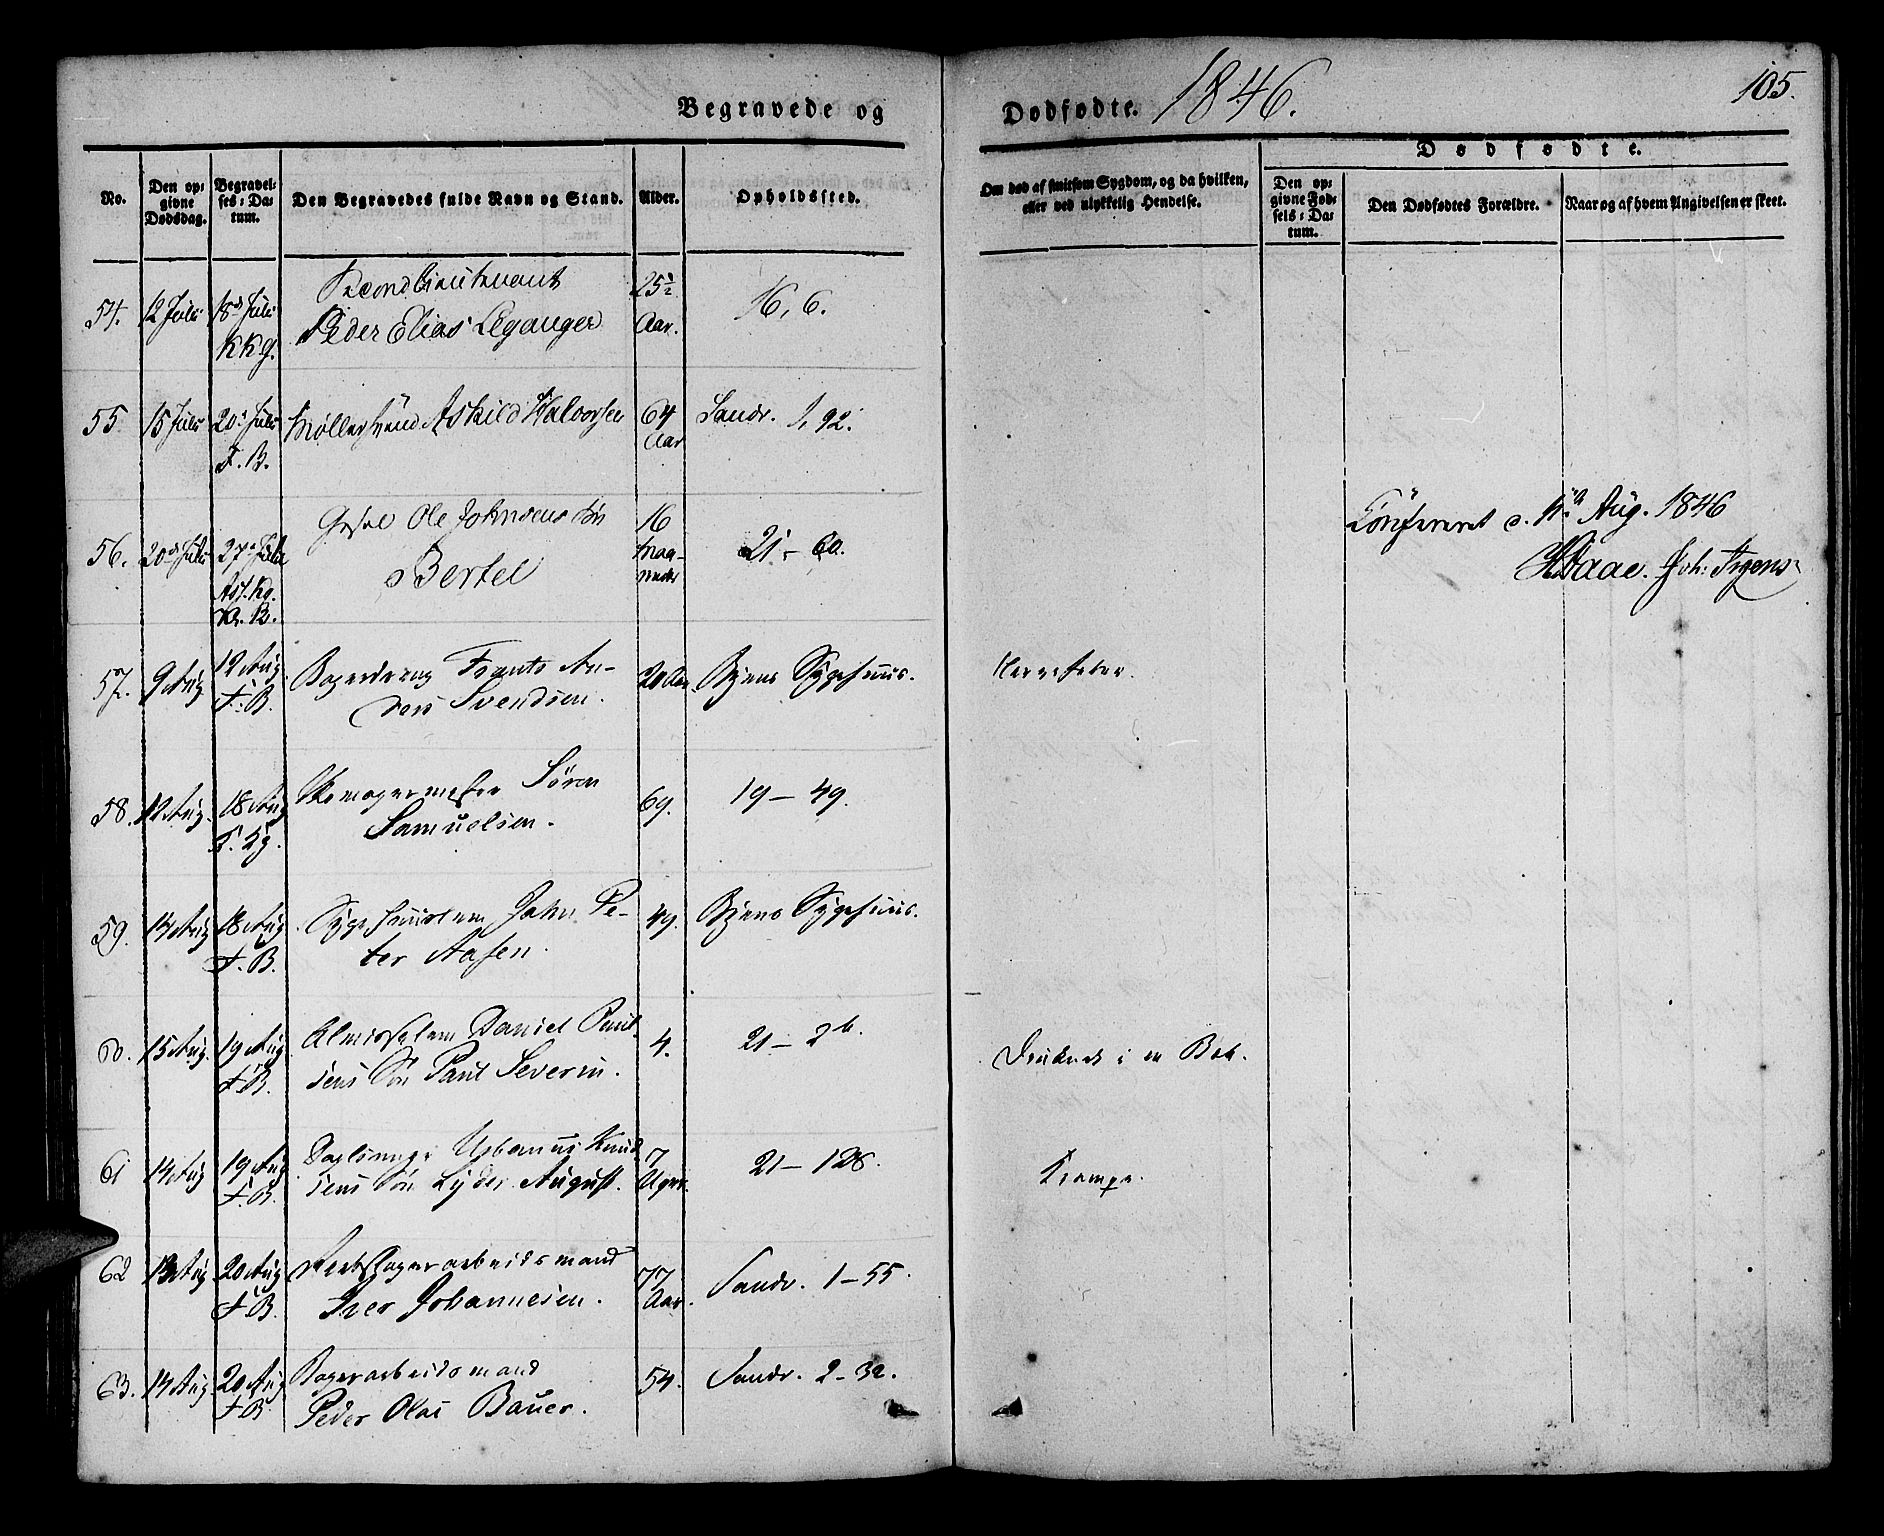 Begravede og
Dødfødte. 1846.
105.
No.
Den op: givne Dødsdag.
Begravel: ses: Da: tum.
Den Begravedes fulde Navn og Stand.
Alder.
Opholdssted.
Om død af smitsom Sygdom, og da hvilken, eller ved ulykkelig Hendelse.
Dødfødte.
Den op: givne Fød: sels: Da: tum.
Den Dødfødtes Forældre.
Naar og af hvem Angivelsen er skeet.
54. 12 Juli 18 Juli KKg.
Secondlieutenant
Peder Elias Leganger
25½ Aar.
16, 6.
55. 15 Juli 20 Juli F. B.
Møllersvend Askild Halvorsen
64 Aar
Sandv. 1, 92.
56. 20 Juli 27 Juli
Ole Johnsens Søn
Bertel
16 Maaneder
21 - 60.
Confereret d. Aug. 1846
57. 9 Aug 12 Aug F. B.
Bagerdreng Frants An-
ders Svendsen.
20 Aar.
Byens Sygehuus.
Nervefeber.
58. 12 Aug. 18 Aug
Skomagermester Sören
Samuelsen.
69.
19 - 49.
59. 14 Aug 18 Aug F. B.
Sygehuuslem John Pe-
ter Aasen.
49.
Byens Sygehuus.
60. 15 Aug. 19 Aug F. B.
Daniel Poul-
sens Søn Paul Severin.
4.
21 - 2 b.
Druknet i en Bøt.
61 14 Aug 19 Aug F. B.
Urbanus Knud
sens Søn Lyder August.
7 Uger.
21 - 128.
Krampe.
62 13 Aug 20 Aug F. B.
arbeidsmand
Iver Johannesen.
77 Aar.
Sandv. 1 - 55.
63. 14 Aug. 20 Aug F. B.
Bagerarbeidsmand
Peder Olai Bauer.
54.
Sandv. 2 - 32.